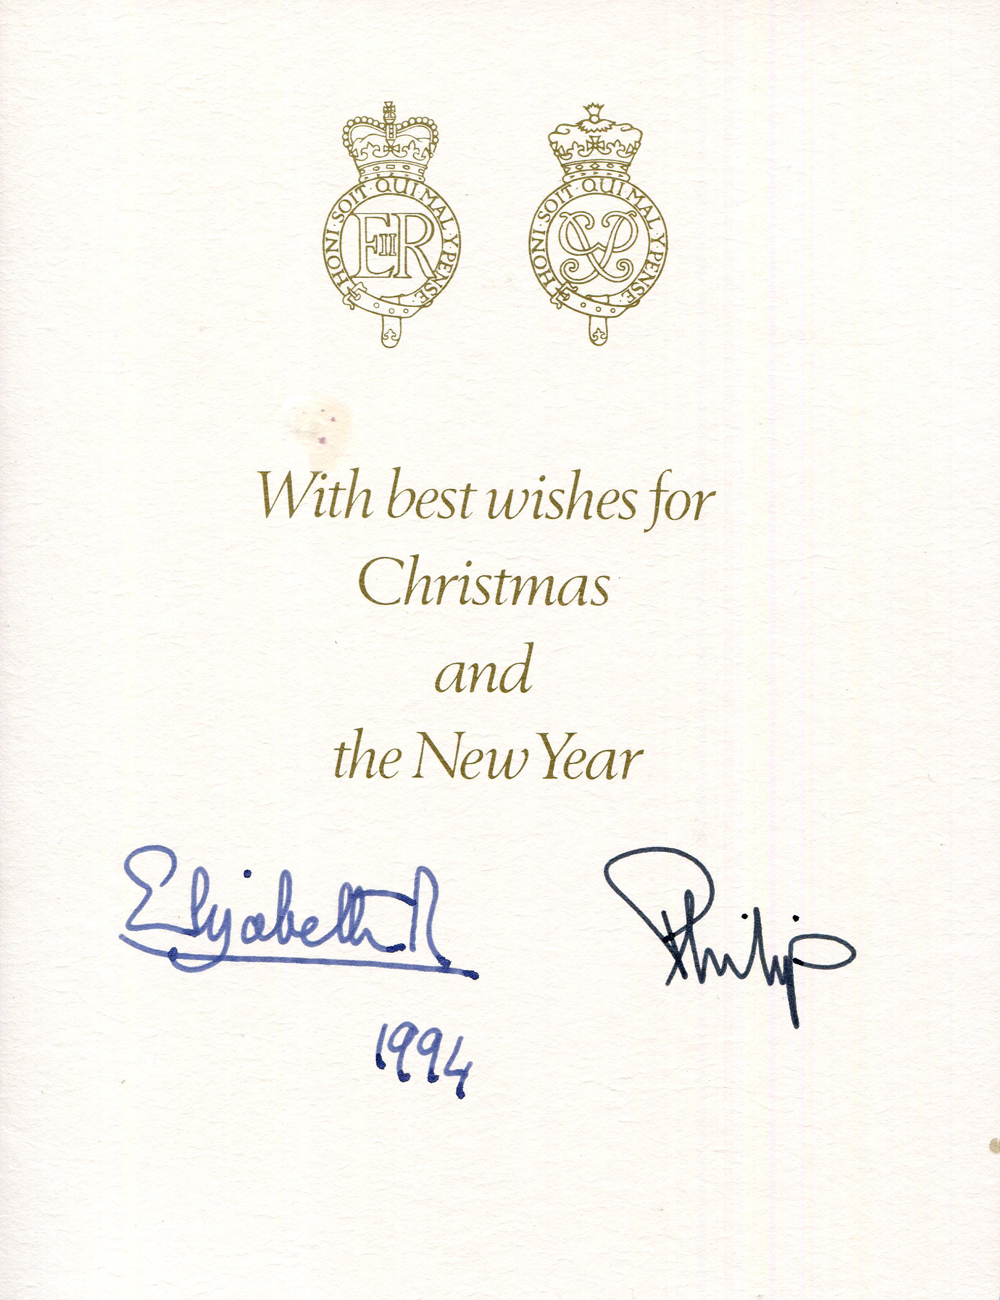 HONI · SOIT · QUI MAL · Y · PENSE
EIIR
HONI · SOIT · QUI MAL · Y · PENSE
With best wishes for
Christmas
and
the New Year
Elizabeth R
Philip
1994